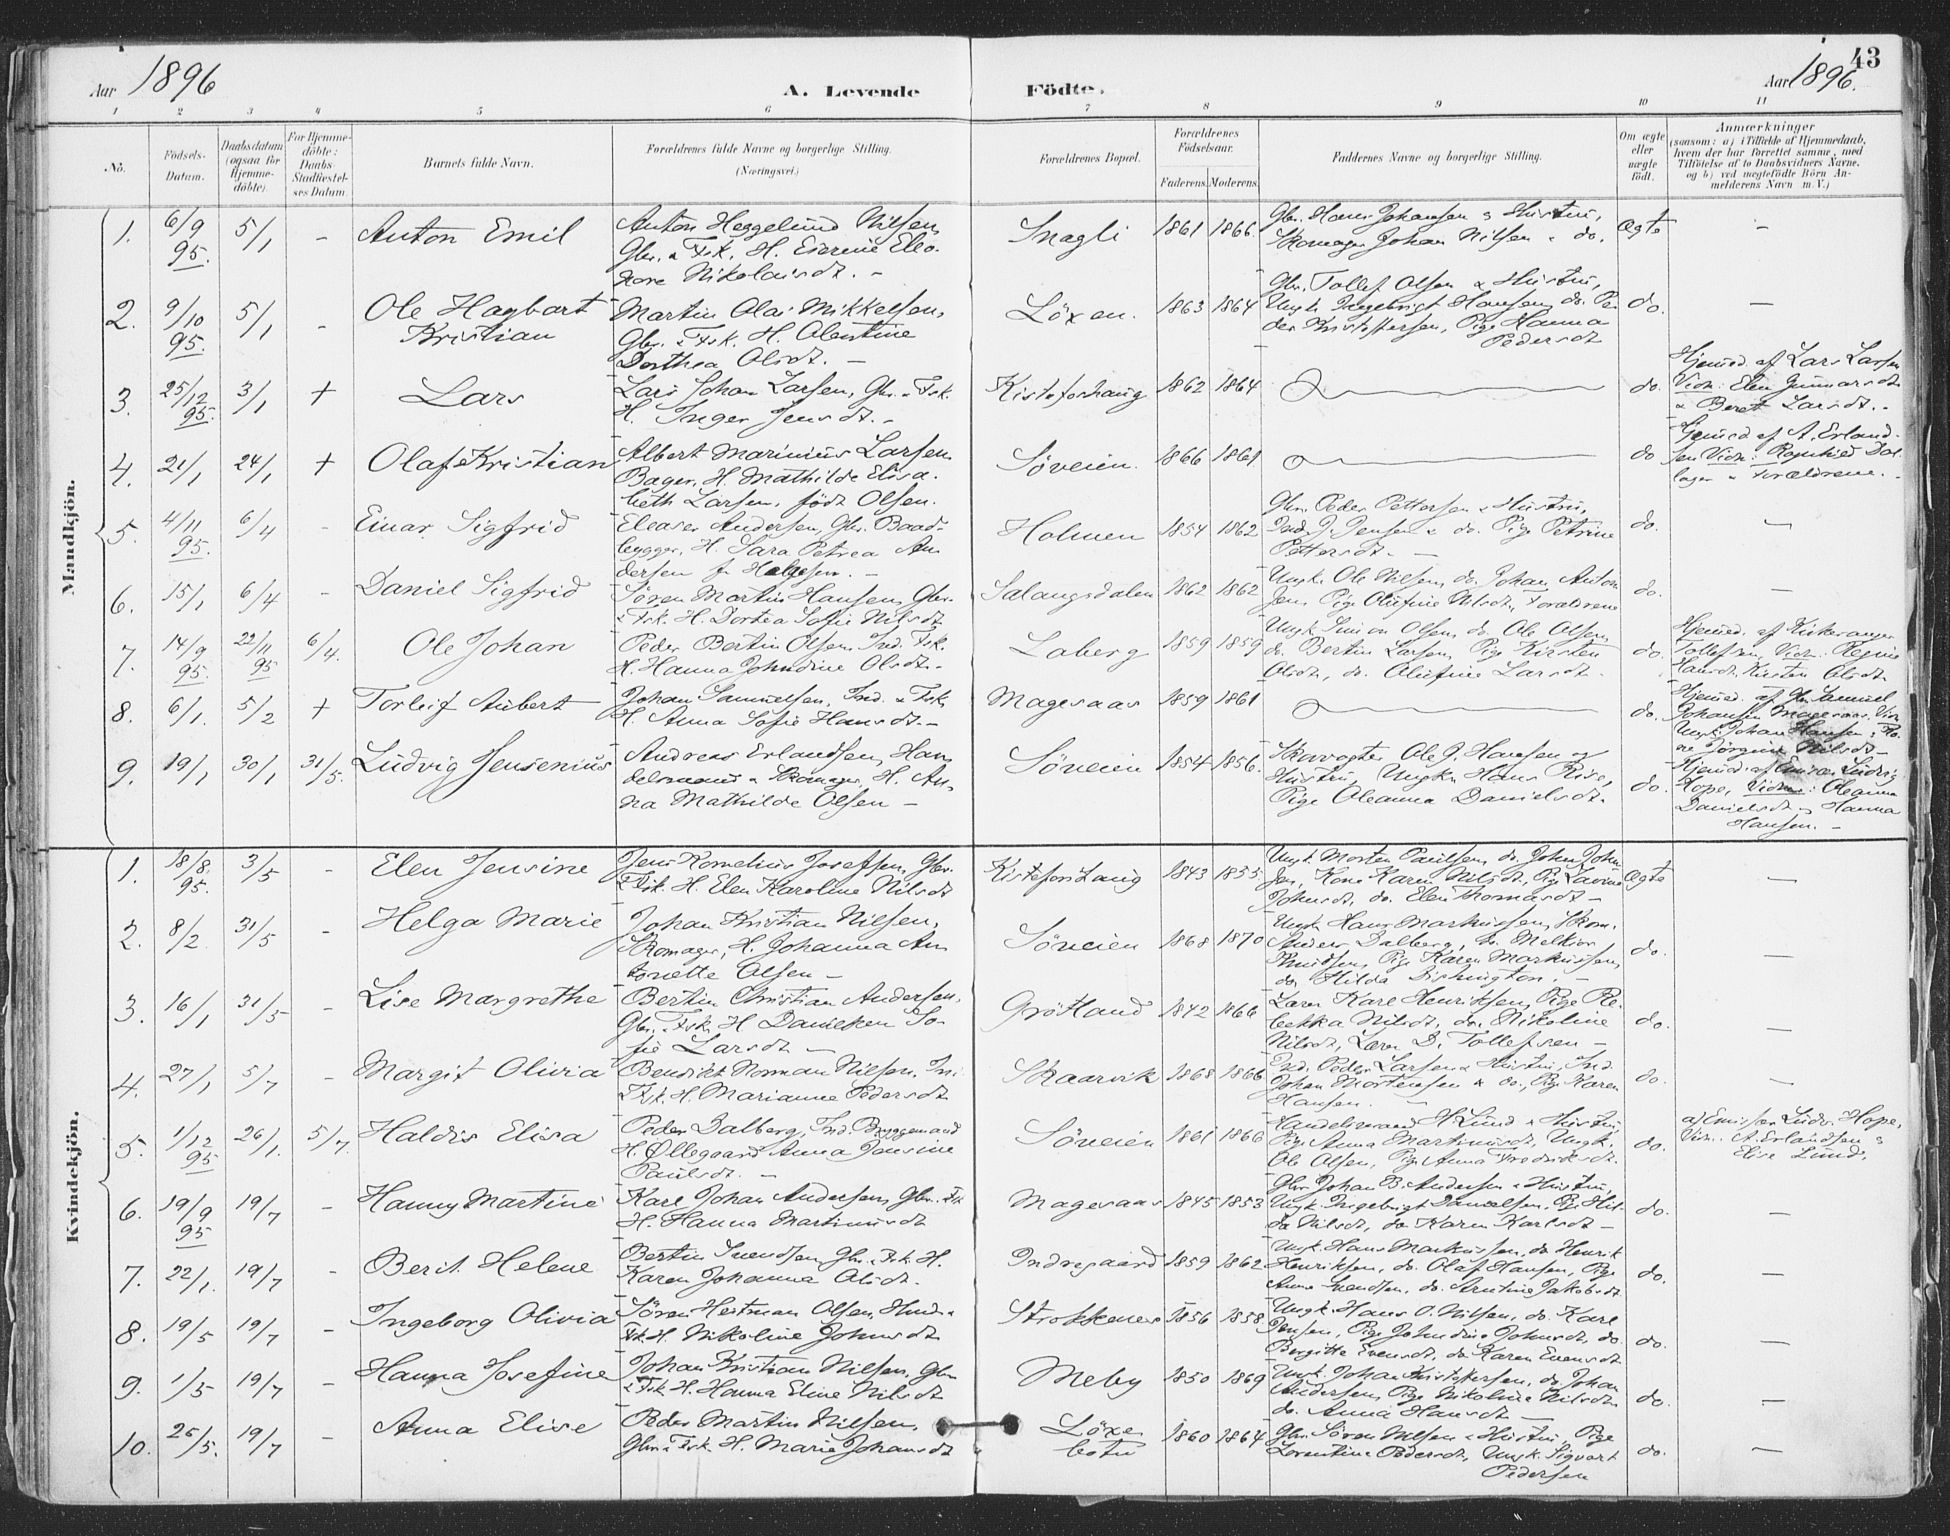 Aar 1896
A. Levende Födte.
Aar 1896.
43
1 2 3 4 5 6 7 8 9 10 11
No.
Födsels-Datum.
Daabsdatum (ogsaa for Hjemmedöbte)
For Hjemmedöbte: Daabs-Stadfæstelses Datum.
Barnets fulde Navn.
Forældrenes fulde Navne og borgerlige Stilling. (Næringsvei.)
Forældrenes Bopæl.
Forældrenes Födselsaar.
Faderens. Moderens.
Faddernes Navne og borgerlige Stilling.
Om ægte eller uægte födt.
Anmærkninger (saasom: a) i Tilfælde af Hjemmedaab, hvem der har forrettet samme, med Tilföielse af to Daabsvidners Navne, og b) ved uægtefödte Börn Anmelderens Navn m. V.)
Mandkjön.
1. 6/9 95. 5/1 - Anton Emil
Anton Heggelund Nilsen,
Gbr. & Fsk. H. Everine Eleo-
nore Nikolaisdt. -
Snagli 1861 1866.
Gbr. Hans Johansen & Hustru,
Skomager Johan Nilsen & do.
Ægte -
2. 9/10 95. 5/1 - Ole Hagbart
Kristian
Martin Olai Mikkelsen,
Gbr. & Fsk. H. Olentine
Dorthea Olsdt. -
Löxen. 1863 1864
Gbr. Tollef Olsen & Hustru,
Ungk. Ingebrigt Hansen, do. Pe-
der Kristoffersen, Pige Hanna
Pedersdt
do. -
3. 25/12 95. 3/1 + Lars
Lars Johan Larsen, Gbr. & Fsk.
H. Inger Jensdt. -
Kisteforhaug 1862 1864
do.
Hjemmed. af Lars Larsen
Vidn: Elen Gunnarsdt
& Beret Larsdt. -
4. 21/1 24/1 + Olaf Kristian
Albert Marinius Larsen
Bager, H. Mathilde Elisa-
beth Larsen, födt Olsen.
Söveien. 1866 1861
do
Hjemmed af A. Erland-
sen Vidn: Ragnhild Dal-
lager & Forældrene. -
5. 4/11 95. 6/4 - Einar Sigfrid
Eleaser Andersen, Gbr. Baad-
bygger, H. Sara Petrea An-
dersen f. Helgesen. -
Holmen 1854 1862
Gbr. Peder Pettersen & Hustru,
Ind. J. Jensen & do. Pige Petrine
Pettersdt. -
do. -
6. 15/1 6/4 - Daniel Sigfrid
Sören Martin Hansen, Gbr.
& Fsk. H. Dortea Sofie Nilsdt
Salangsdalen 1862 1862
Ungk. Ole Nilsen, do. Johan Anton
Jens. Pige Olufine Nilsdt. Forældrene
do. -
7. 14/9 95. 22/11 95 6/4. Ole Johan
Peder Bertin Olsen, Ind. Fsk.
H. Hanna Johndine Olsdt.
Laberg 1859 1859
Ungk. Simon Olsen, do. Ole Olsen,
do. Bertin Larsen, Pige Kirsten
Olsdt, do. Olufine Larsdt.
do.
Hjemmed. af Kirkesanger
Tollefsen, Vidn: Regine
Hansdt, Kirsten Olsdt
8. 6/1. 5/2 + Torleif Aubert
Johan Samuelsen, Ind. & Fsk.
H. Anna Sofie Hansdt. -
Magesaas 1859 1861
do.
Hjemmed. af Samuel
Johansen Magesaas, Vidn.
Ungk. Johan Hansen & Ko-
ne Jörgine Nilsdt -
9. 19/1 30/1 31/5. Ludvig Jensenius
Andreas Erlandsen, Han-
delsmand & Skomager, H. An-
na Mathilde Olsen -
Söveien 1854 1856.
Skovvogter Ole J. Hansen og
Hustru, Ungkr Hans Rise,
Pige Oleanna Danielsdt.
do.
Hjemmed. af Emissær Ludvig
Hope, Vidne: Oleanna
Danielsdt & Hanna
Hansen. -
Kvindekjön.
1. 18/8. 95. 3/5 - Elen Jensine
Jens Kornelius Josefsen, Gbr.
& Fsk. H. Elen Karoline Nilsdt
Kisteforhaug 1843 1855
Ungk. Morten Paulsen, do. Johan John-
sen, Kone Karen Nilsdt, Pige Lavine
Johnsdt, do. Elen Thomasdt -
Ægte -
2. 8/2 31/5 - Helga Marie
Johan Kristian Nilsen,
Skomager, H. Johanna An-
tonette Olsen -
Söveien 1868 1870
Ungk Hans Markussen, Skom.
Anders Dalberg, do. Melkior
Knutsen, Pige Karen Markussen,
do. Hilda Dishington. -
do. -
3. 16/1 31/5 - Lise Margrethe
Bertin Christian Andersen,
Gbr. & Fsk. H Danieken So-
fie Larsdt -
Gröttland 1842 1866
Lærer Karl Henriksen, Pige Re-
bekka Nilsdt, do. Nikoline
Nilsdt, Lærer D. Tollefsen -
do. -
4. 27/1 5/7 - Margit Olivia
Benedikt Norman Nilsen, Ind.
Fsk. H. Marianne Pedersdt
Skaarvik 1868 1866
Ind. Peder Larsen & Hustru, Ind.
Johan Mortensen & do., Pige Karen
Hansen.
do. -
5. 1/12 95 26/1. 5/7. Haldis Elisa
Peder Dalberg, Ind. Bryggemand
H. Øllegaard Anna Jensine
Paulsdt. -
Söveien 1861 1866
Handelsmand H. Lund & Hustru,
Pige Anna Martinusdt, Ungk.
Ole Olsen, Pige Anna Fredriksdt.
do.
a) Emissær Ludv. Hope,
Vidn. A. Erlandsen &
Elise Lund.
6. 19/9 95 19/7 - Hanny Martine
Karl Johan Andersen, Gbr. Fsk
H. Hanna Martinusdt
Magesaas 1845 1853
Gbr. Johan B. Andersen & Hustru,
Ungk. Ingebrigt Danielsen, Pige Hil-
da Nilsdt, do Karen Karlsdt -
do. -
7. 22/1. 19/7 - Berit Helene
Bertin Svendsen, Gbr. & Fsk. H.
Karen Johanna Olsdt.
Indregaard 1859 1862
Ungk. Hans Markussen, do Henrik
Henriksen, do. Olaf Hansen, Pige
Anna Svendsen, do. Arntine Jakobsdt
do. -
8. 19/5 19/7 - Ingeborg Olivia
Sören Hertman Olsen, Husm. &
Fsk. H. Nikoline Johnsdt
Strokkenes 1856 1858
Ungk. Hans O. Nilsen, do. Karl
Jensen, Pige Johndine Johnsdt, do.
Bergitte Evensdt, do Karen Evensdt
do. -
9. 1/5 19/7 - Hanna Josefine
Johan Kristian Nilsen, Gbr
& Fsk H. Hanna Eline Nilsdt
Meby 1850 1869
Ungk. Johan Kristoffersen, do Johan
Andersen, Pige Nikoline Nilsdt,
do. Anna Hansdt -
do. -
10. 26/5. 19/7 - Anna Elise
Peder Martin Nilsen,
Gbr. & Fsk. H. Marie Johansdt
Löxe-
botn 1860 1864
Gbr. Sören Nilsen & Hustru, Pige
Lorentine Pedersdt, Ungk. Sigvart
Pedersen
do. -